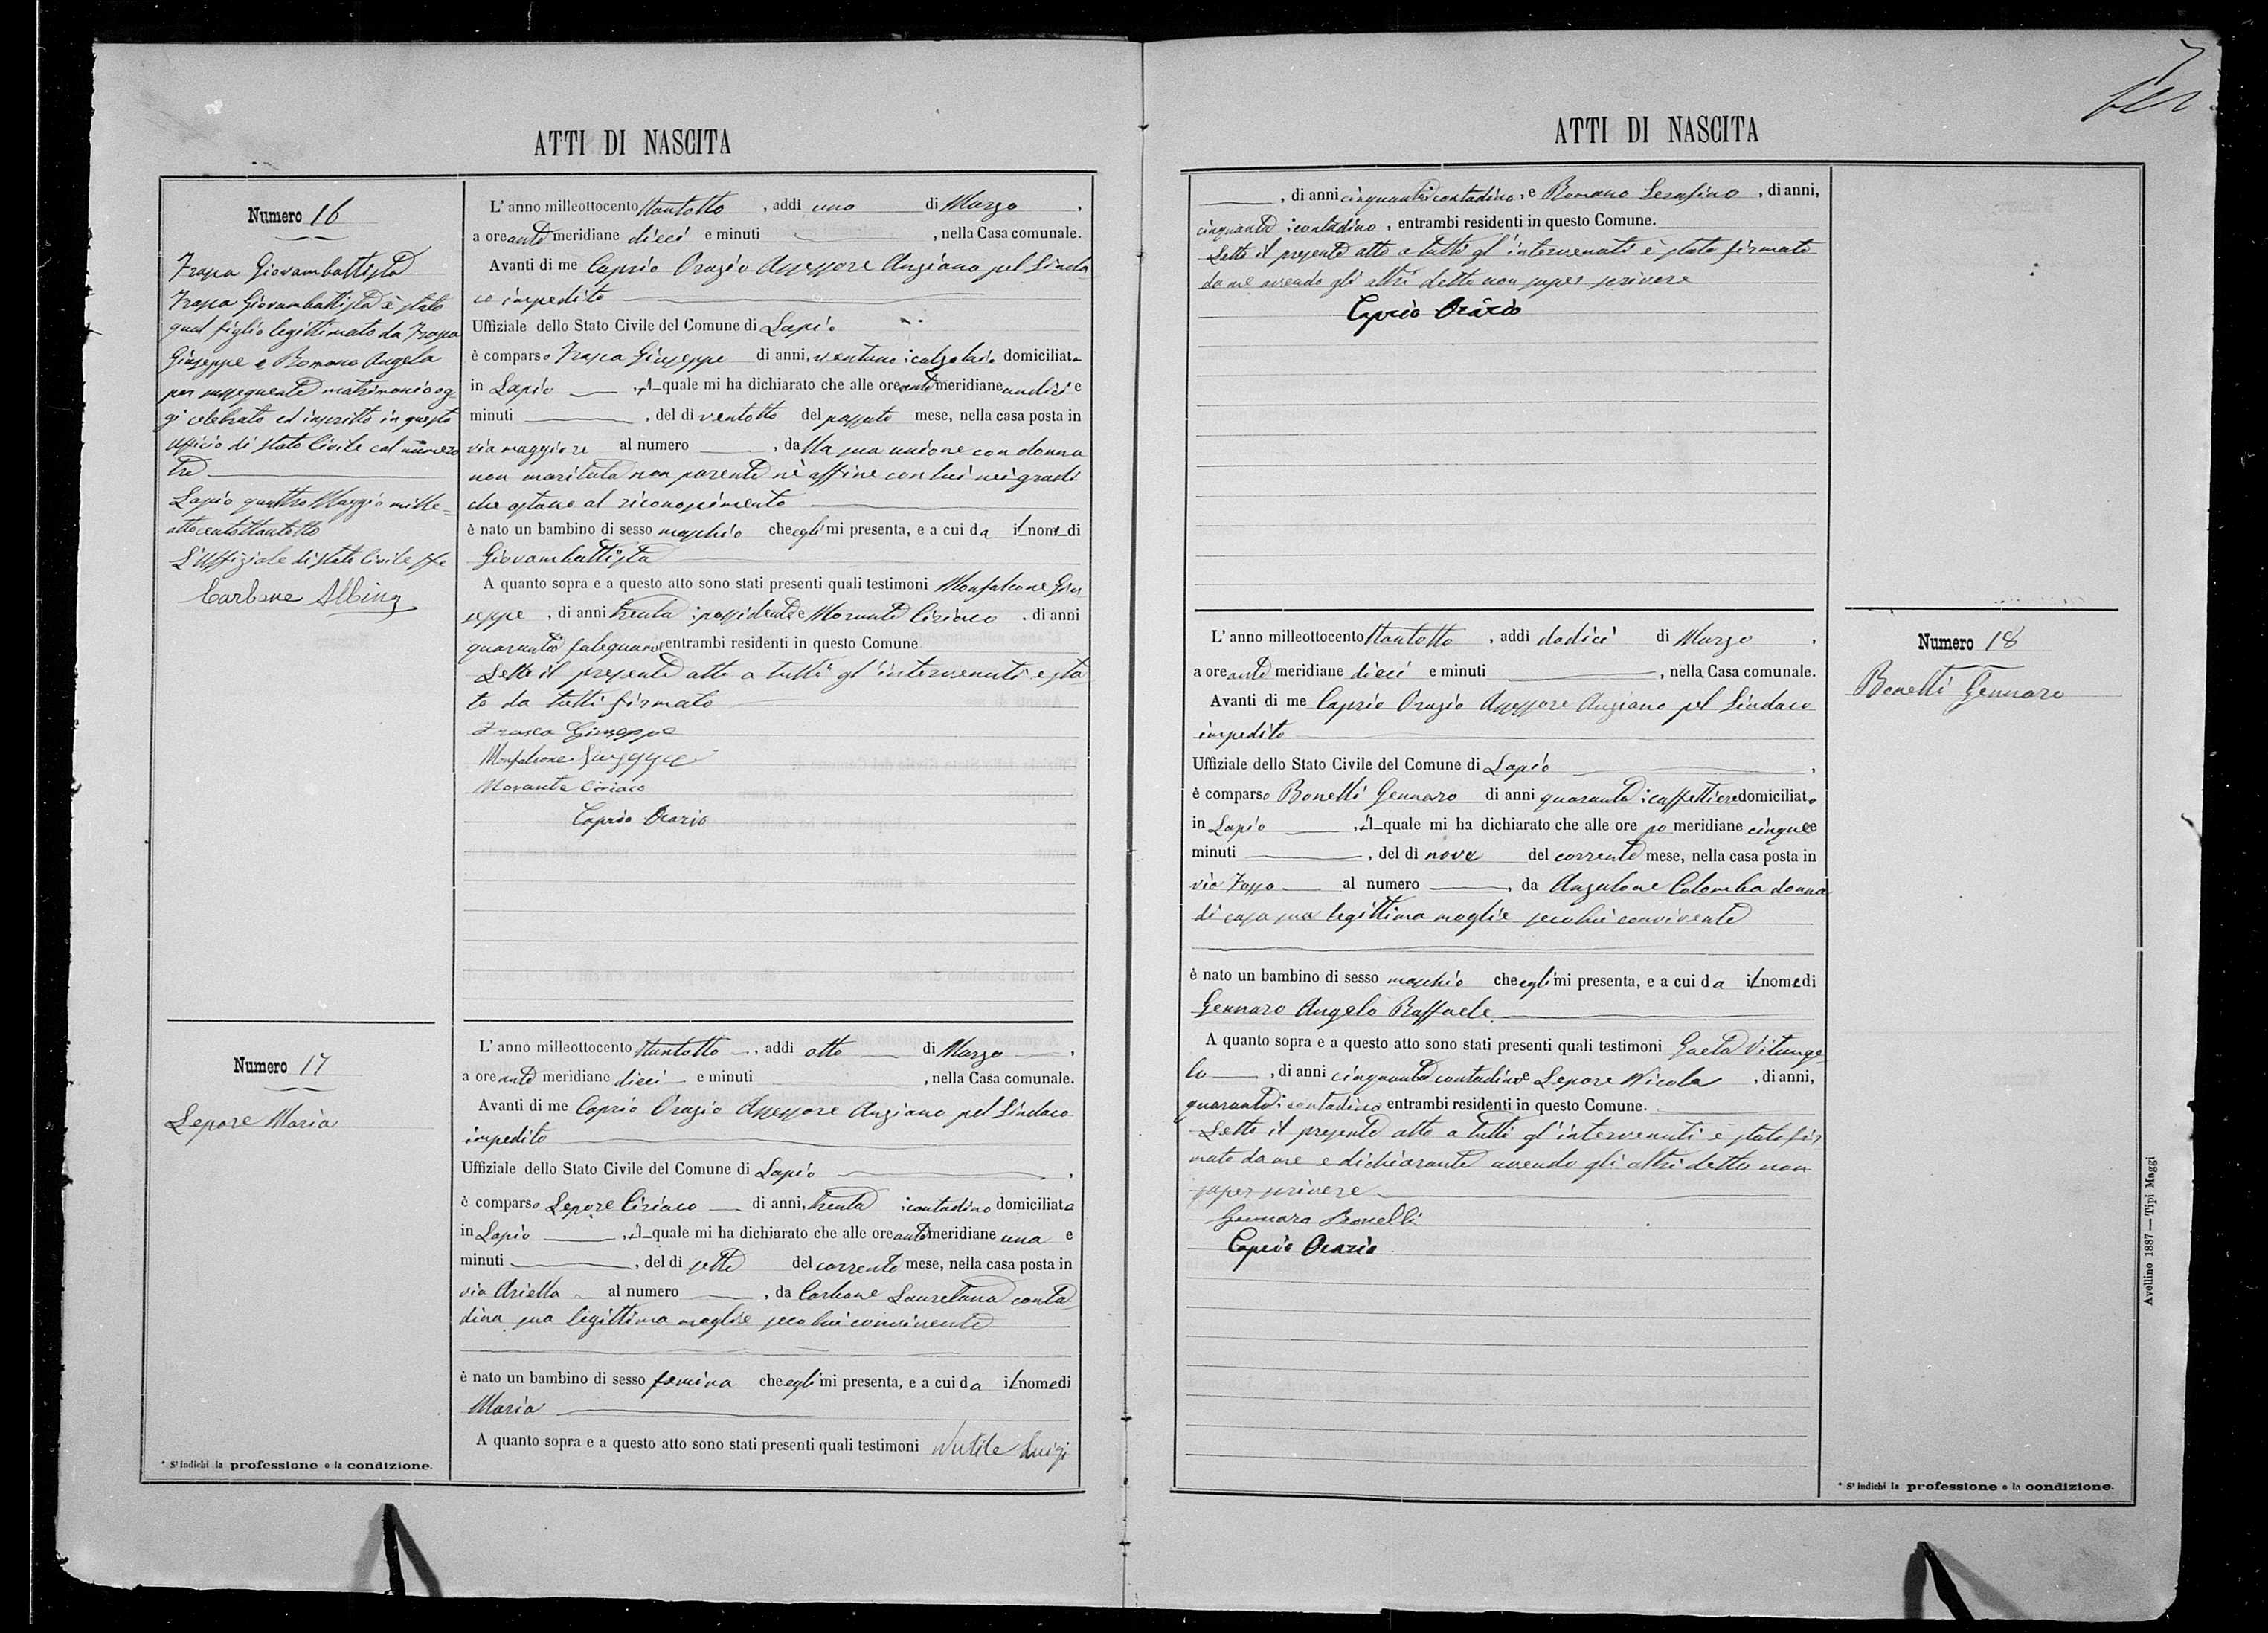 ATTI DI NASCITA
Numero 16
Frasca Giovambattista
Frasca Giovambattista è stato
qual figlio legittimato da Frasca
Giuseppe e Romano Angela
per susseguente matrimonio og-
gi celebrato ed inscritto in questo
Ufficio di Stato Civile col numero
tre
Lapio quattro Maggio mille=
ottocentottantotto
L'Uffiziale di Stato Civile ffe
Carbone Albino
L'anno milleottocento ttantotto, addì uno di Marzo,
a ore ante meridiane dieci e minuti , nella Casa comunale.
Avanti di me Caprio Orazio Assessore Anziano pel Sinda
co impedito
Uffiziale dello Stato Civile del Comune di Lapio
è comparso Frasca Giuseppe di anni, ventuno; calzolaio domiciliato
in Lapio , il quale mi ha dichiarato che alle ore ante meridiane undici e
minuti , del dì ventotto del passato mese, nella casa posta in
via maggiore al numero , dalla sua unione con donna
non maritata non parente nè affine con lui nei gradi
che ostano al riconoscimento
è nato un bambino di sesso maschio che egli mi presenta, e a cui da il nome di
Giovambattista
A quanto sopra e a questo atto sono stati presenti quali testimoni Monfalcone Giu
seppe, di anni trenta; possidente e Morante Ciriaco, di anni
quaranta falegname entrambi residenti in questo Comune
Letto il presente atto a tutti gl'intervenuti è sta
to da tutti firmato
Frasca Giuseppe
Monfalcone Giuseppe
Morante Ciriaco
Caprio Orazio
Numero 17
Lepore Maria
L'anno milleottocento ttantotto, addì otto di Marzo,
a ore ante meridiane dieci e minuti , nella Casa comunale.
Avanti di me Caprio Orazio Assessore Anziano pel Sindaco
impedito
Uffiziale dello Stato Civile del Comune di Lapio,
è comparso Lepore Ciriaco di anni, trenta; contadino domiciliato
in Lapio , il quale mi ha dichiarato che alle ore ante meridiane una e
minuti , del dì sette del corrente mese, nella casa posta in
via Ariella al numero , da Carbone Lauretana conta
dina sua legittima moglie seco lui convivente
è nato un bambino di sesso femina che egli mi presenta, e a cui da il nome di
Maria
A quanto sopra e a questo atto sono stati presenti quali testimoni Nutile Luigi
* S'indichi la professione o la condizione.
7
ATTI DI NASCITA
, di anni cinquanta contadino, e Romano Serafino, di anni,
cinquanta; contadino, entrambi residenti in questo Comune.
Letto il presente atto a tutti gl'intervenuti è stato firmato
da me avendo gli altri detto non saper scrivere
Caprio Orazio
Numero 18
Bonelli Gennaro
L'anno milleottocento ttantotto, addì dodici di Marzo,
a ore ante meridiane dieci e minuti , nella Casa comunale.
Avanti di me Caprio Orazio Assessore Anziano pel Sindaco
impedito
Uffiziale dello Stato Civile del Comune di Lapio,
è comparso Bonelli Gennaro di anni quaranta; caffettiere domiciliato
in Lapio , il quale mi ha dichiarato che alle ore po meridiane cinque e
minuti , del dì nove del corrente mese, nella casa posta in
via Fosso al numero , da Anzalone Colomba donna
di casa sua legittima moglie seco lui convivente
è nato un bambino di sesso maschio che egli mi presenta, e a cui da il nome di
Gennaro Angelo Raffaele
A quanto sopra e a questo atto sono stati presenti quali testimoni Gaeta Vitange
lo , di anni cinquanta contadino e Lepore Nicola, di anni,
quaranta; contadino entrambi residenti in questo Comune.
Letto il presente atto a tutti gl'intervenuti è stato fir
mato da me e dichiarante avendo gli altri detto non
saper scrivere
Gennaro Bonelli
Caprio Orazio
* S'indichi la professione o la condizione.
Avellino 1887 — Tipi Maggi